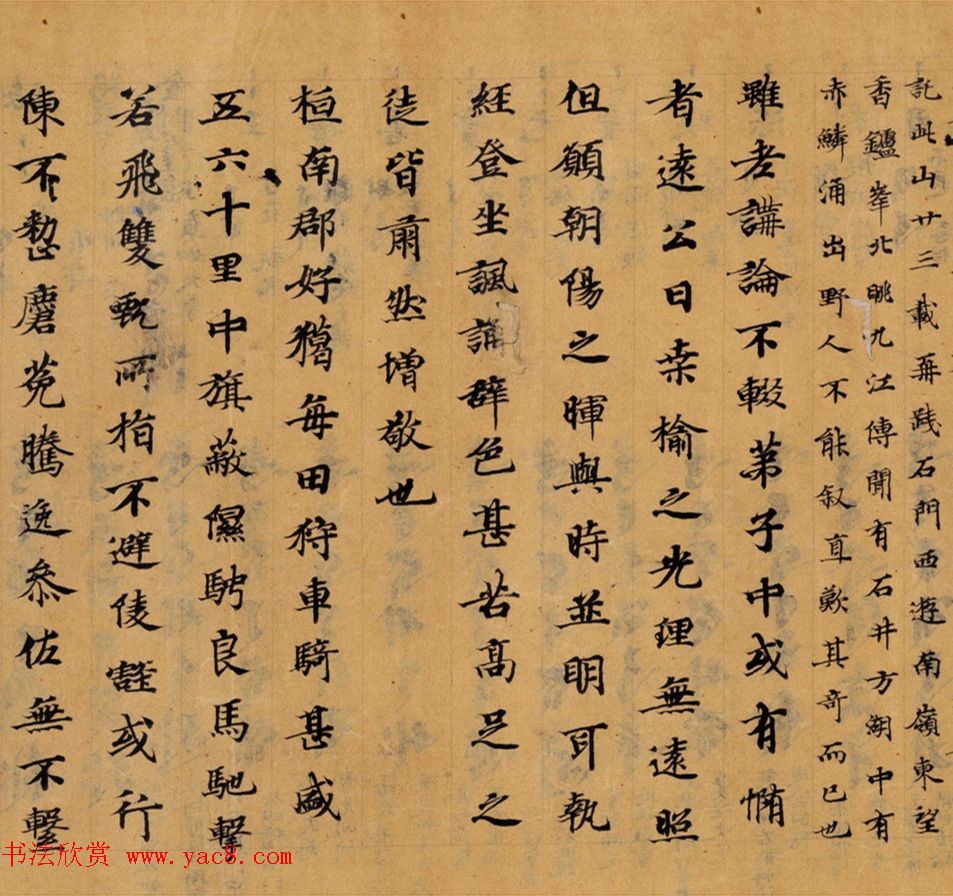 託此山廿三載再践石門西遊南嶺東望
香鑪峯北眺九江傳聞有石井方湖中有
赤鱗涌出野人不能叙直歎其奇而已也
雖老講論不輟弟子中或有惰
者遠公曰桒榆之光理無遠照
但願朝陽之暉與時並明耳執
經登坐諷誦辞色甚苦高足之
徒皆肅然增敬也
桓南郡好獦每田狩車騎甚盛
五六十里中旌旗蔽隰騁良馬馳擊
若飛雙甄所指不避陵壑或行
陳不整麏菟騰逸叅佐無不繫
书法欣赏 www.yac8.com